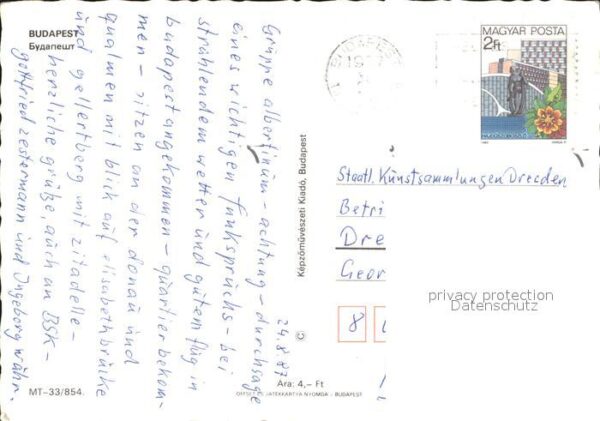 BUDAPEST
Будапешт
24.8.87
Gruppe albertinum - achtung - durchsage
eines wichtigen funkspruchs - bei
strahlendem wetter und gutem flug in
budapest angekommen - quartier bekom-
men - sitzen an der donau und
qualmen mit blick auf elisabethbrücke
und gellertberg mit zitadelle -
herzliche grüße, auch an BSK -
gottfried zestermann und Ingeborg
MT-33/854.
Képzőművészeti Kiadó, Budapest
Ára: 4,- Ft
OFFSET ÉS JÁTÉKKÁRTYA NYOMDA - BUDAPEST
BUDAPEST
MAGYAR POSTA
2Ft
Staatl. Kunstsammlungen Dresden
Betri
Dre
Geor
8
privacy protection
Datenschutz